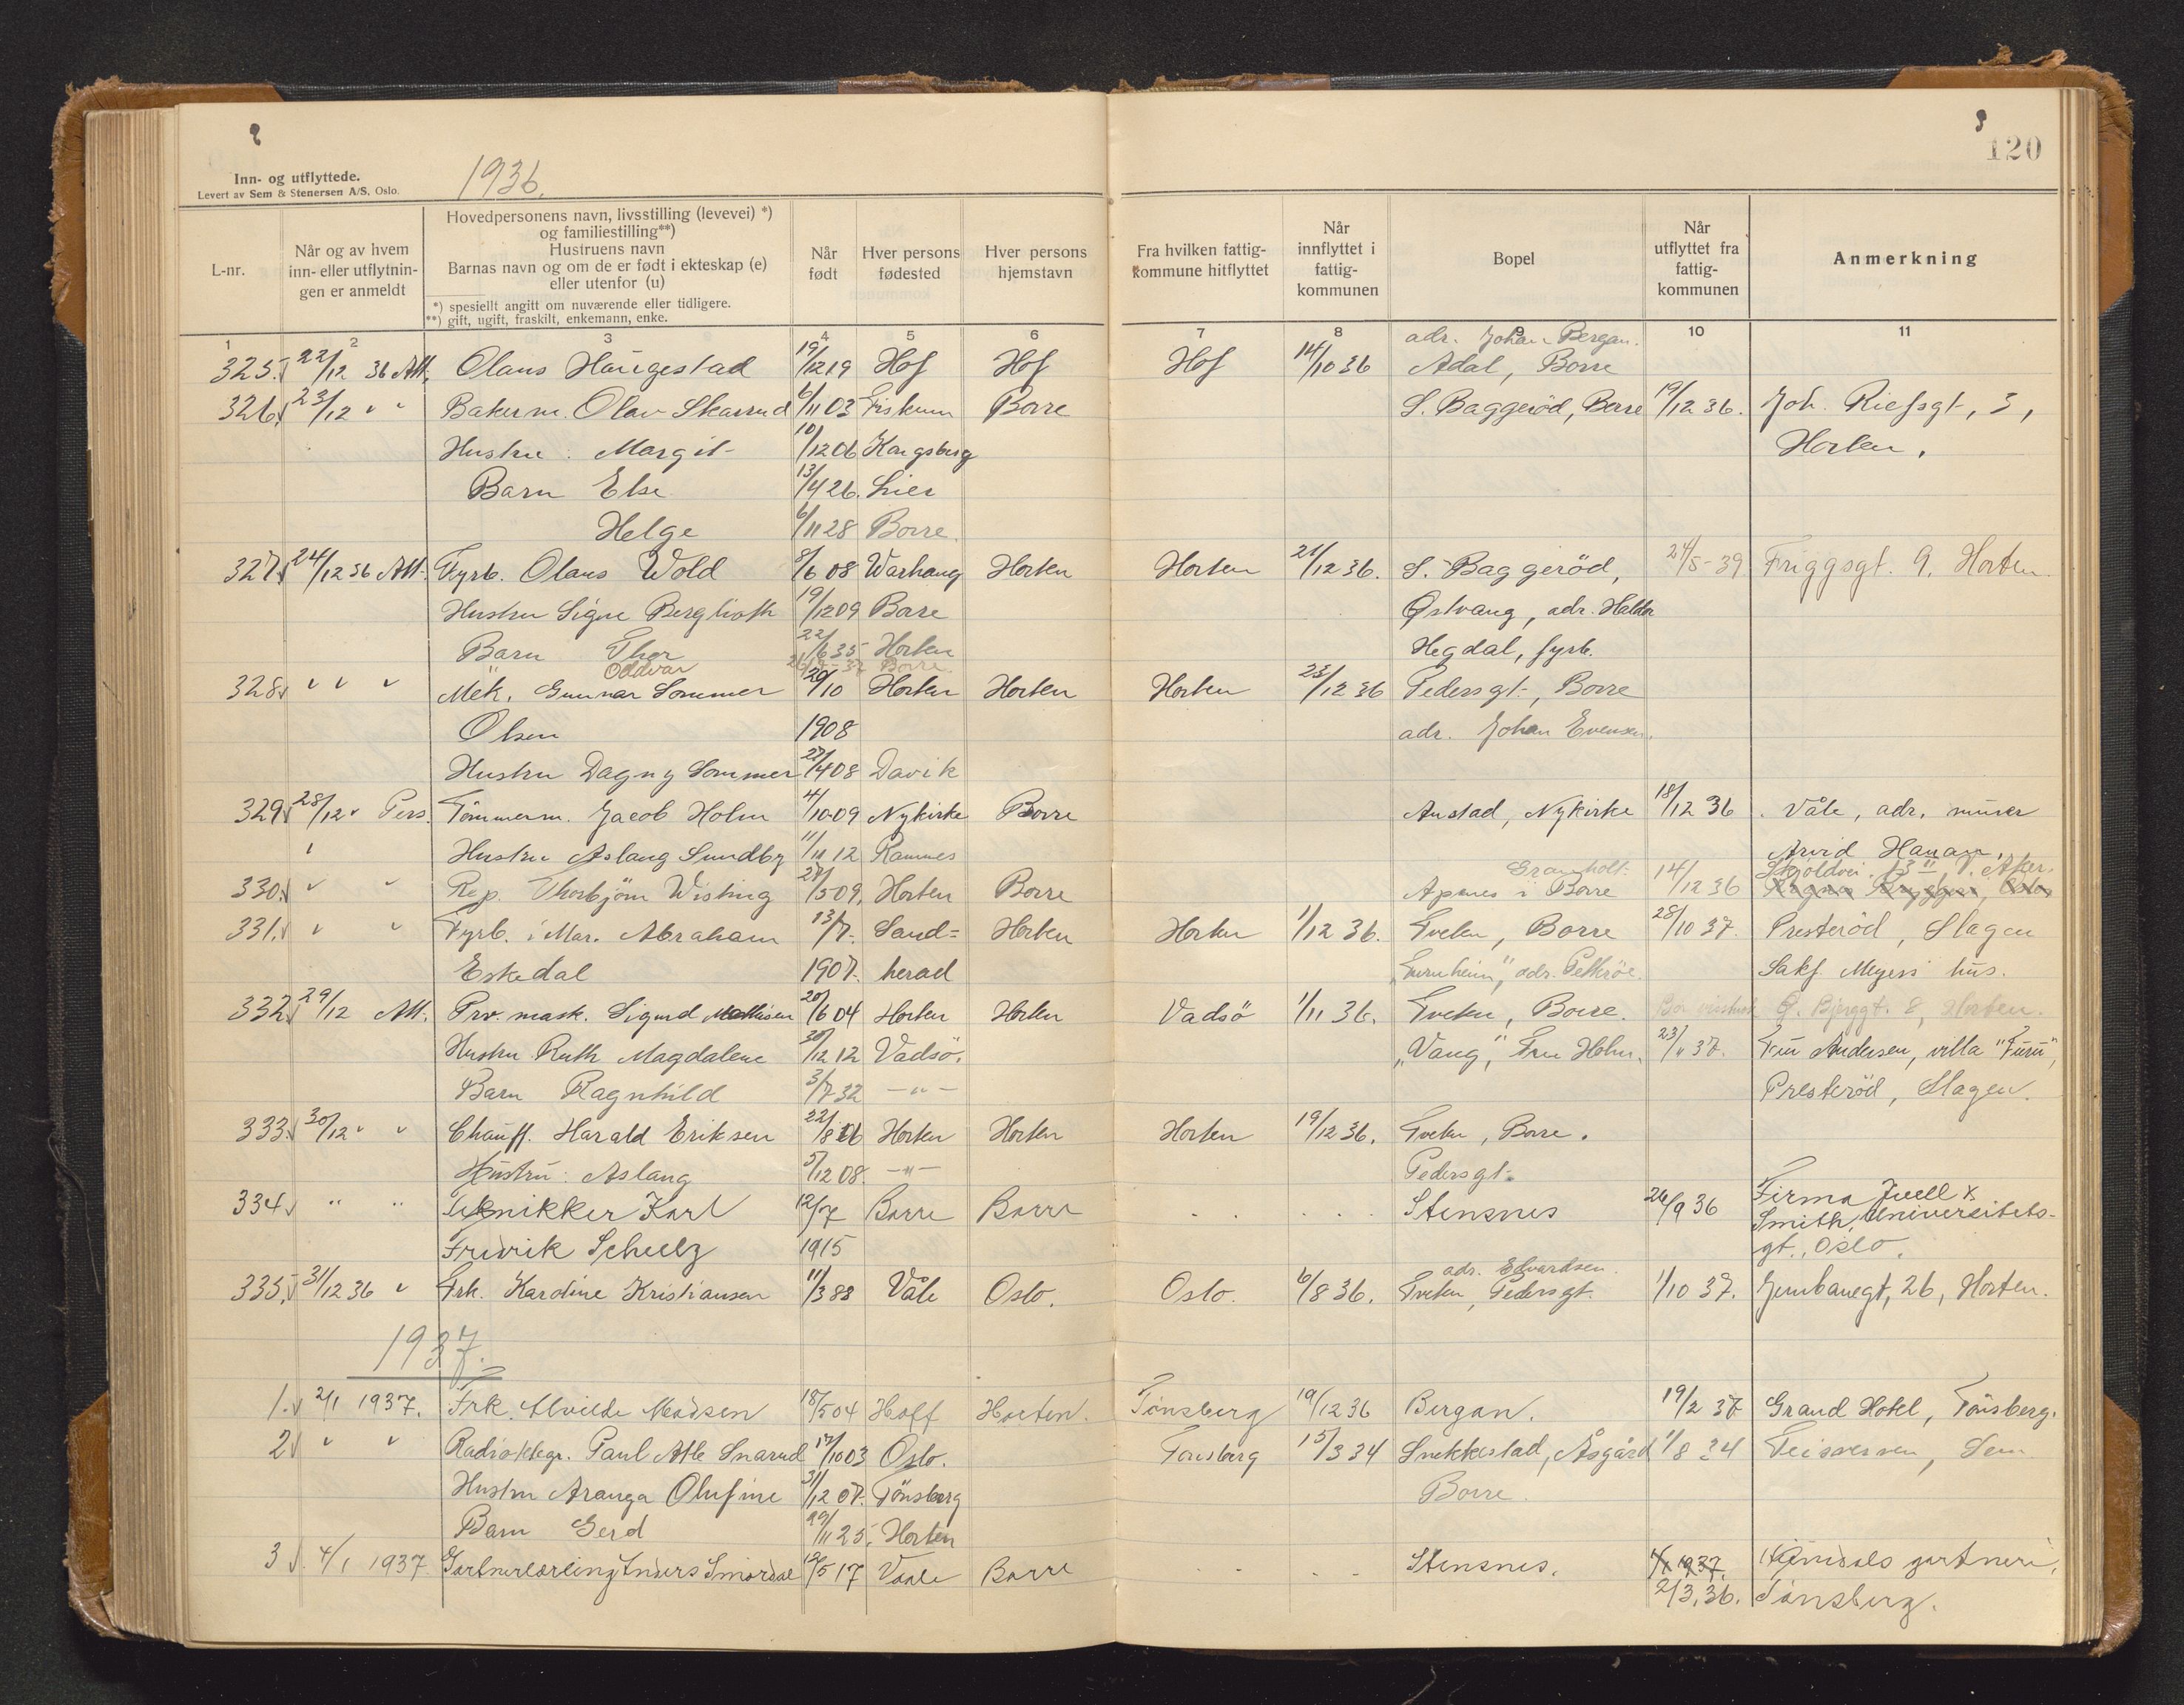 120
Inn- og utflyttede.
Levert av Sem & Stenersen A/S, Oslo.
1936.
L-nr.
Når og av hvem inn- eller utflytnin-gen er anmeldt
Hovedpersonens navn, livsstilling (levevei) *) og familiestilling**) Hustruens navn Barnas navn og om de er født i ekteskap (e) eller utenfor (u)
*) spesiellt angitt om nuværende eller tidligere.
**) gift, ugift, fraskilt, enkemann, enke.
Når født
Hver persons fødested
Hver persons hjemstavn
Fra hvilken fattig-kommune hitflyttet
Når innflyttet i fattig-kommunen
Bopel
Når utflyttet fra fattig-kommunen
Anmerkning
1 2 3 4 5 6 7 8 9 10 11
adr. Johan Bergan.
325. 22/12 36 Att. Olaus Haugestad 19/12 19 Hof Hof Hof 14/10 36 Adal, Borre
326. 23/12 " " Bakerm. Olav Skarrud 6/11 03 Fiskum Borre S. Baggeröd, Borre 19/12 36. Joh. Riefsgt, 3,
Hustru: Margit 10/12 06 Kongsberg Horten.
Barn Else 13/4 26. Lier
Helge 6/11 28 Borre.
327. 24/12 36 Att. Fyrb. Olaus Wold 8/6 08 Warhaug Horten Horten 21/12 36. S. Baggeröd, 24/5-39 Friggsgt. 9. Horten.
Hustru Signe Berglioth 19/12 09 Borre Østvang, adr. Haldor
Barn Thor 22/6 35 Horten Hegdal, fyrb.
" Oddvar Borre.
328. " " " Mek. Gunnar Sommer 20/10 Horten Horten Horten 23/12 36 Pedersgt., Borre
Olsen 1908 adr. Johan Evensen.
Hustru Dagny Sommer 27/4 08 Davik
329. 28/12 " Pers. Tömmerm. Jacob Holm 4/10-09 Nykirke Borre Austad, Nykirke 18/12 36 Våle, adr. murer
" Hustru Aslaug Sundby 11/11 12 Ramnes Arvid Hanan,
Granholt. Skjoldvei. 13 II V. Aker.
330. " " Rep. Thorbjörn Wisting 27/5 09. Horten Borre Apenes i Borre 14/12 36
331. " " Fyrb. i Mar. Abraham 13/7. Sand= Horten Horten 1/12 36. Tveten, Borre 28/10 37. Presteröd, Slagen
Eskedal 1907. herad adr. Petteröe. Sakf. Meyers hus.
332. 29/12 Att. Prv. mask. Sigurd Mathisen 20/6 04 Horten Horten Vadsö 1/11 36. Tveten, Borre. Ø. Bjerggt. 8, Horten.
Hustru Ruth Magdalene 30/12 12 Vadsö. "Vang", Fru Holm. 23/" 37. Fru Andersen, villa "Furu",
Barn Ragnhild 3/7 32 — " — Presteröd, Slagen.
333. 30/12 " " Chauff. Harald Eriksen 22/8 06 Horten Horten Horten 19/12 36. Tveten, Borre.
Hustru: Aslaug 5/12 08. — " — Pedersgt.
334. " " Teknikker Karl 12/7 Borre Borre Stensnes 26/9 36 Firma Juell &
Fredrik Schulz 1915 Smith, Universitets-
gt., Oslo.
adr. Edvardsen.
335. 31/12 36 " Frk. Karoline Kristiansen 11/3 88 Våle Oslo. Oslo. 6/8 36. Tveten, Pedersgt. 1/10 37. Jernbanegt, 26, Horten.
1937.
1. 2/1 1937. Frk. Alvilde Madsen 18/5 04 Hoff Horten. Tönsberg 19/12 36 Bergan. 19/2 37 Grand Hotel, Tönsberg.
2 " " Radiotelegr. Paul Atle Snarud 17/10 03 Oslo. Tönsberg 15/3 34 Snekkestad, Åsgård 1/8 34 Teisveien, Sem
Hustru Aranga Olufine 31/12 07. Tönsberg Borre
Barn Gerd 29/11 25. Horten
3. 4/1 1937. Gartnerlærling Anders Smördal 12/5 17 Vaale Borre Stensnes. 4/1 1937. gartneri,
2/3.36. Tönsberg.